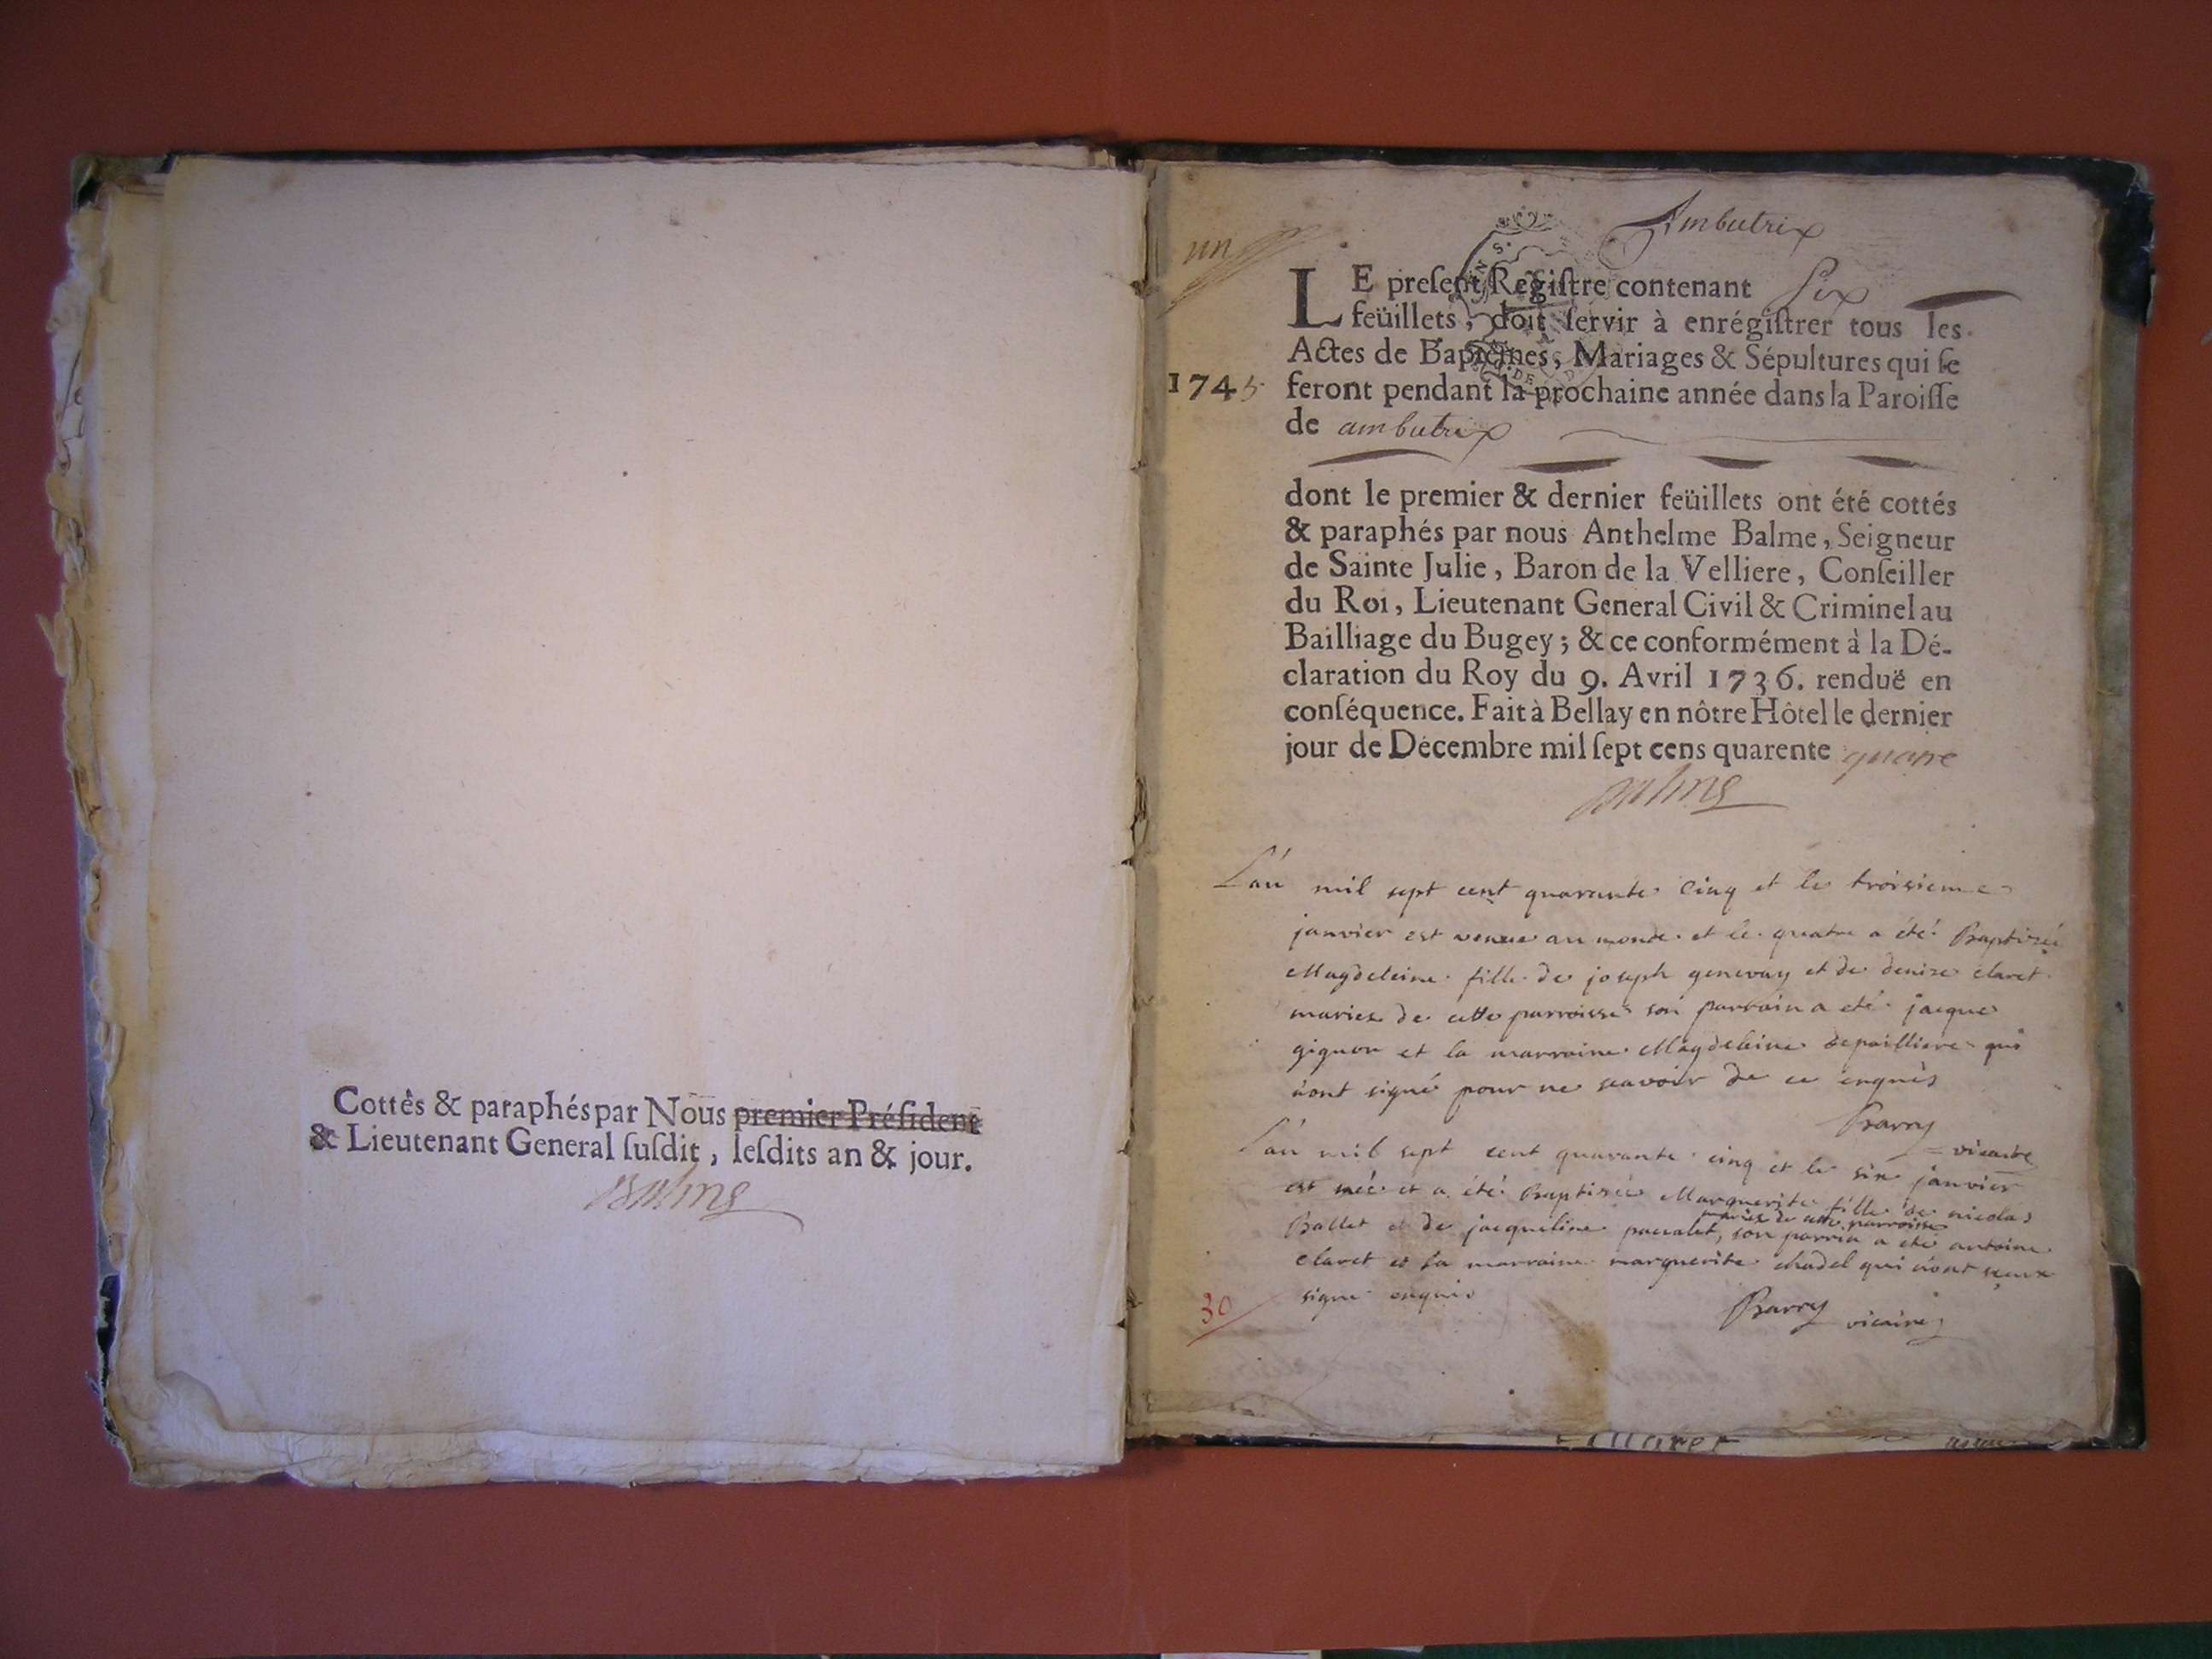 Cottés & paraphés par Nous premier Préſident
& Lieutenant General ſuſdit, leſdits an & jour.
Balme
Ambutrix
un
LE preſent Regiſtre contenant Six
feüillets, doit ſervir à enrégiſtrer tous les
Actes de Baptêmes, Mariages & Sépultures qui ſe
1745 feront pendant la prochaine année dans la Paroiſſe
de ambutrix
dont le premier & dernier feüillets ont été cottés
& paraphés par nous Anthelme Balme, Seigneur
de Sainte Julie, Baron de la Velliere, Conſeiller
du Roi, Lieutenant General Civil & Criminel au
Bailliage du Bugey; & ce conformément à la Dé-
claration du Roy du 9. Avril 1736. renduë en
conſéquence. Fait à Bellay en nôtre Hôtel le dernier
jour de Décembre mil ſept cens quarente quatre
Balme
L'an mil sept cent quarante cinq et le troisieme
janvier est venue au monde et le quatre a été Baptisée
Magdeleine fille de joseph genevay et de denise claret
maries de cette parroisse son parrain a eté jacque
gignon et la marraine Magdeleine qui
n'ont signé pour ne scavoir de ce enquis
Barry vicaire
L'an mil sept cent quarante cinq et le six janvier
est née et a été Baptisée Marguerite fille de nicolas
mariés de cette parroisse
Ballet et de jacqueline , son parrin a eté antoine
claret et la marraine marguerite chadel qui n'ont sceux
signe enquis
Barry vicaire
30